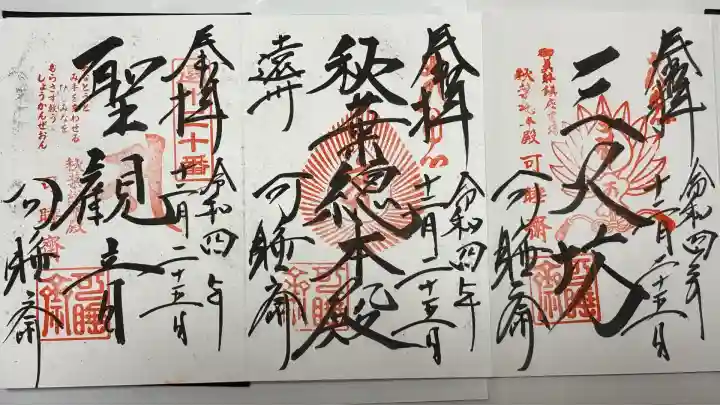 奉拝
令和四年
十二月二十五日
三尺坊
秋葉総本殿 可睡齋
可睡斎
奉拝
令和四年
十二月二十五日
秋葉總本殿
遠州
可睡斎
奉拝
十番
令和四年
十二月二十五日
聖観音
み手を合わせる
もらさず救う
しょうかんぜおん
可睡斎